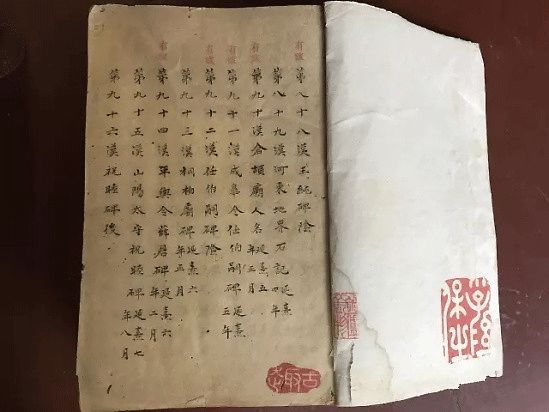 有跋 第八十八漢王純碑陰
第八十九漢河東地界石記 延熹四年
有跋 第九十漢倉頡廟人名 延熹五年月
有跋 第九十一漢成皋令任伯嗣碑 延熹五年
有跋 第九十二漢任伯嗣碑陰
第九十三漢桐柏廟碑 延熹六年月
有跋 第九十四漢平輿令薛君碑 延熹六年二月
第九十五漢山陽太守祝睦碑 延熹七年八月
第九十六漢祝睦碑後